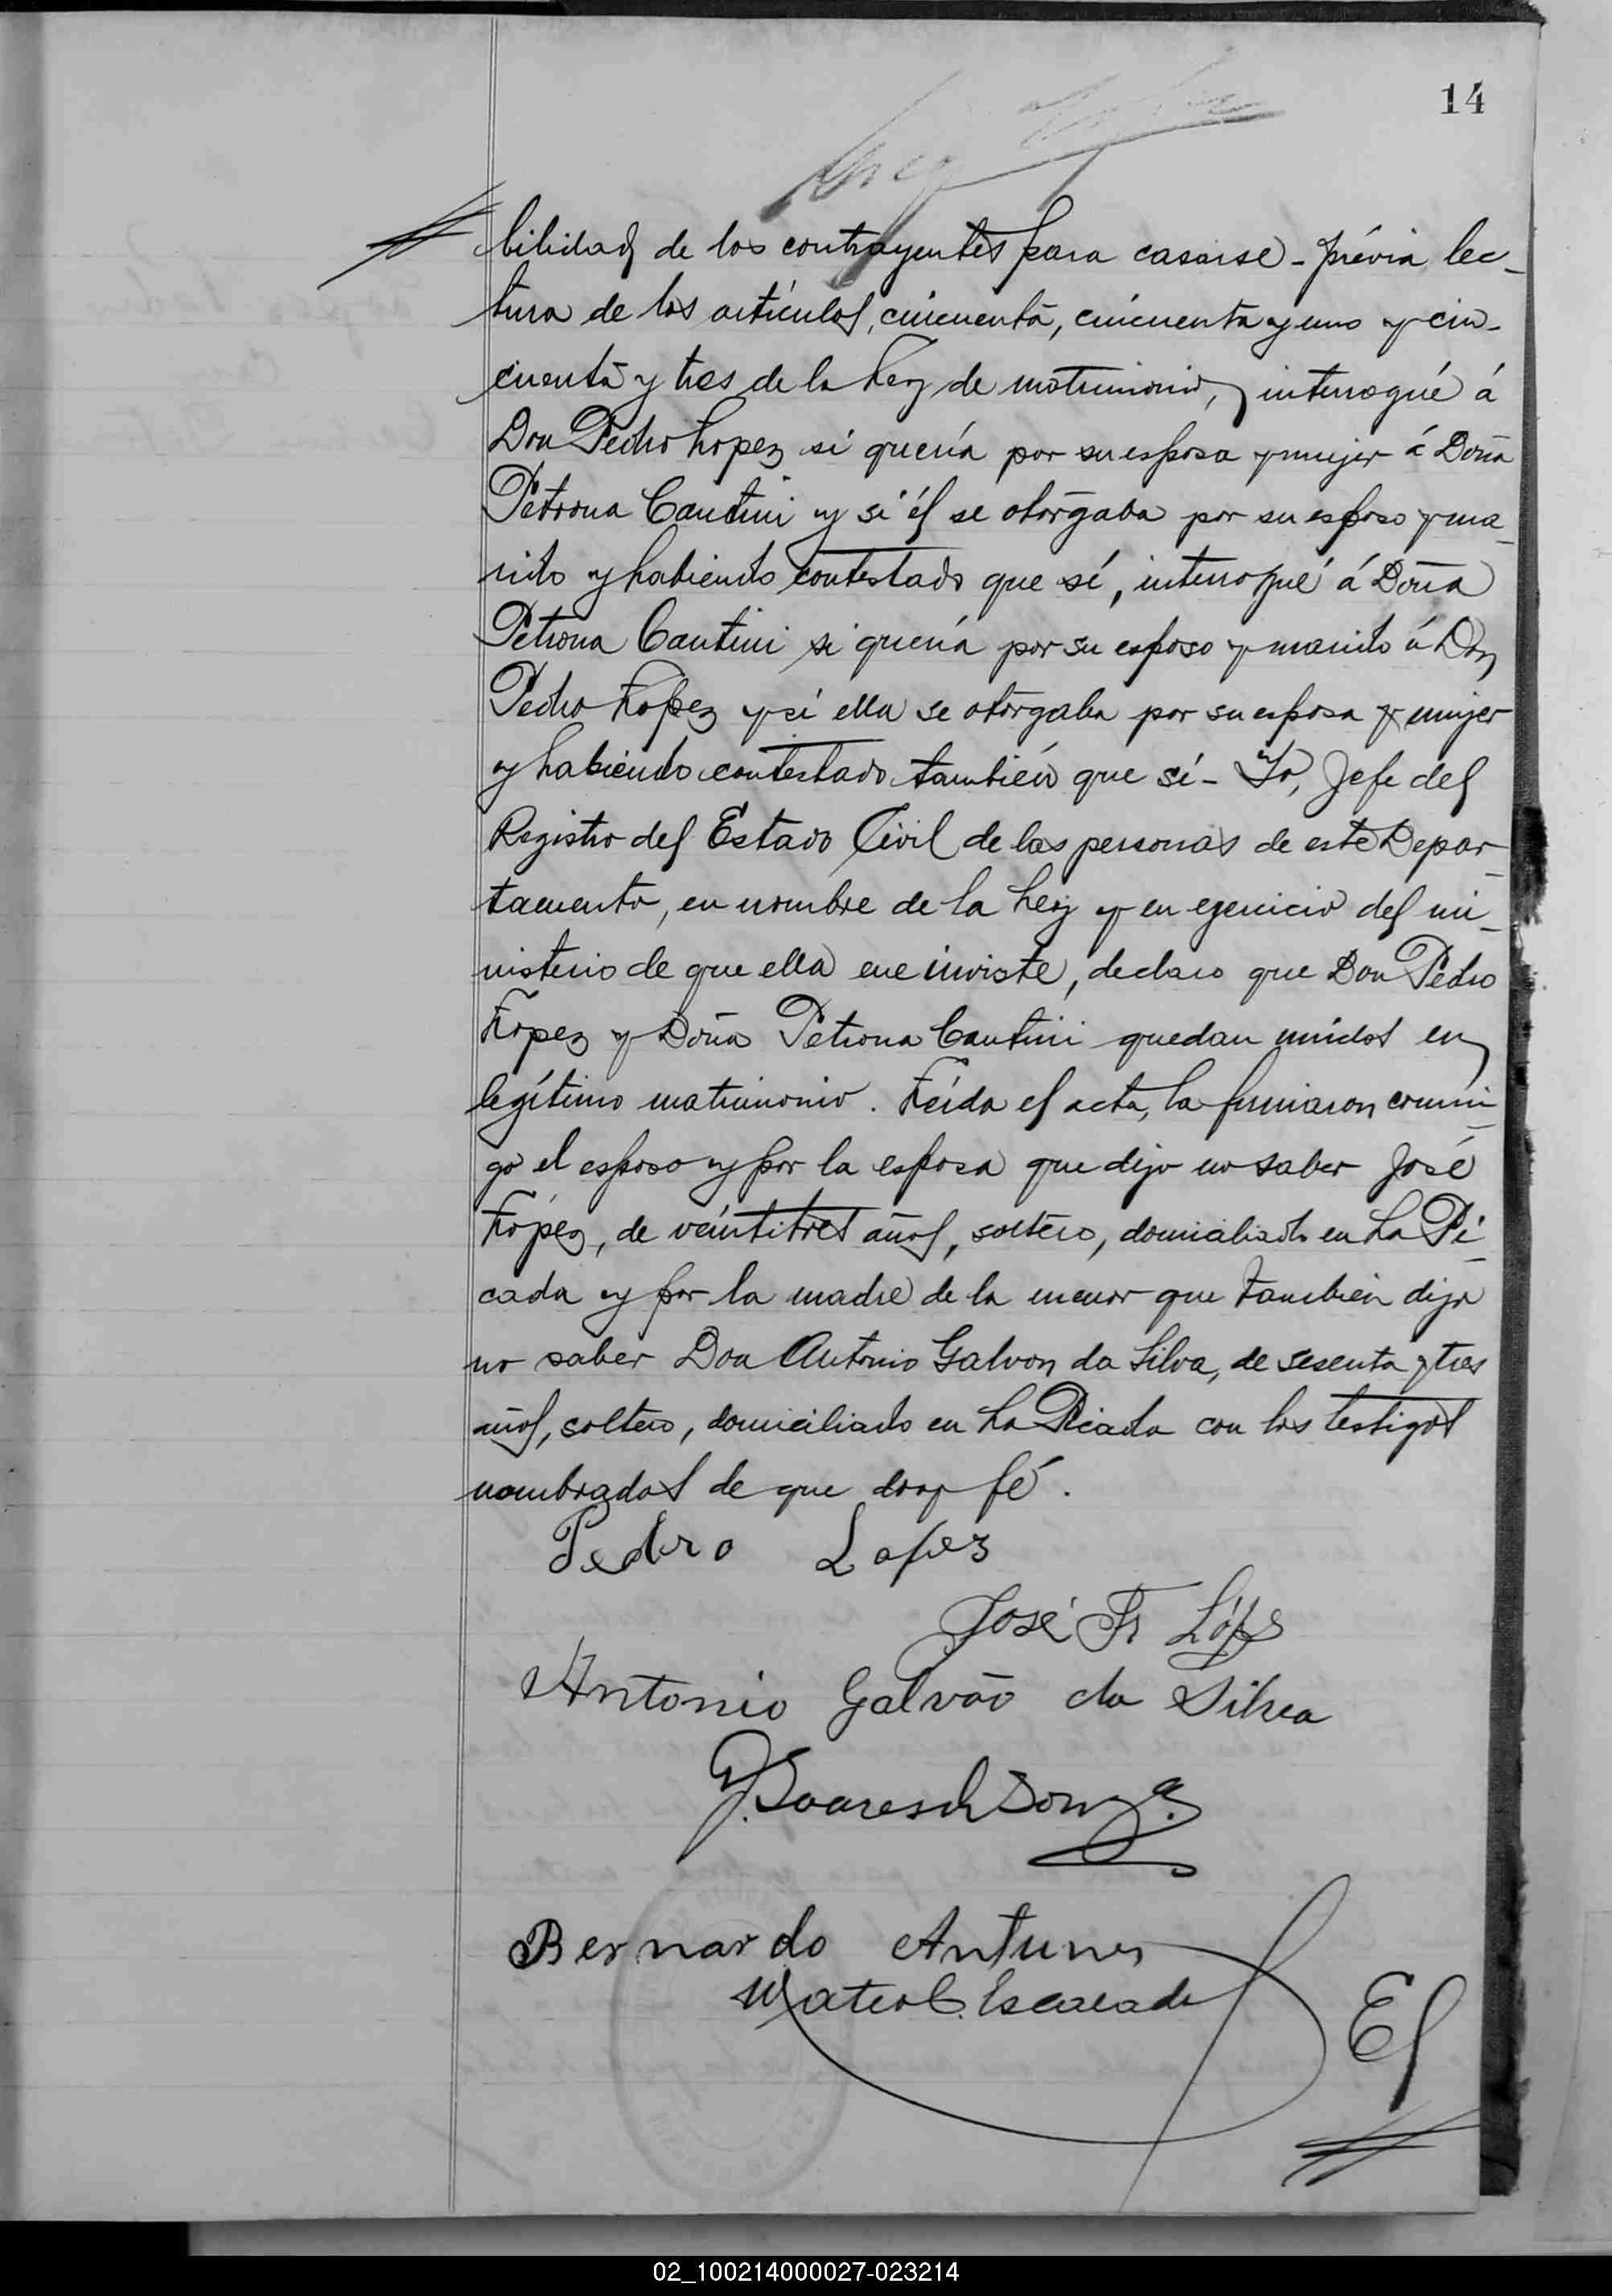 14
bilidad de los contrayentes para casarse - prévia lec-
tura de los artículos, cincuenta, cincuenta y uno y cin-
cuenta y tres de la Ley de matrimonio, interrogué á
Don Pedro Lopez si quería por su esposa y mujer á Doña
Petrona Cantini y si él se otorgaba por su esposo y ma-
rido y habiendo contestado que sí, interrogué á Doña
Petrona Cantini si quería por su esposo y marido á Don
Pedro Lopez y si ella se otorgaba por su esposa y mujer
y habiendo contestado también que sí - Yo, Jefe del
Registro del Estado Civil de las personas de este Depar-
tamento, en nombre de la Ley y en ejercicio del mi-
nisterio de que ella me inviste, declaro que Don Pedro
Lopez y Doña Petrona Cantini quedan unidos en
legítimo matrimonio. Leída el acta, la firmaron conmi-
go el esposo y por la esposa que dijo no saber José
López, de veintitres años, soltero, domiciliado en La Pi-
cada y por la madre de la menor que también dijo
no saber Don Antonio Galvon da Silva, de sesenta y tres
años, soltero, domiciliado en La Picada con los testigos
nombrados de que doy fé.
Pedro Lopez
José Fr López
Antonio Galvão da Silva
Soares de Souza
Bernardo Antunes
Mateo C. Escalada
El
02_100214000027-023214